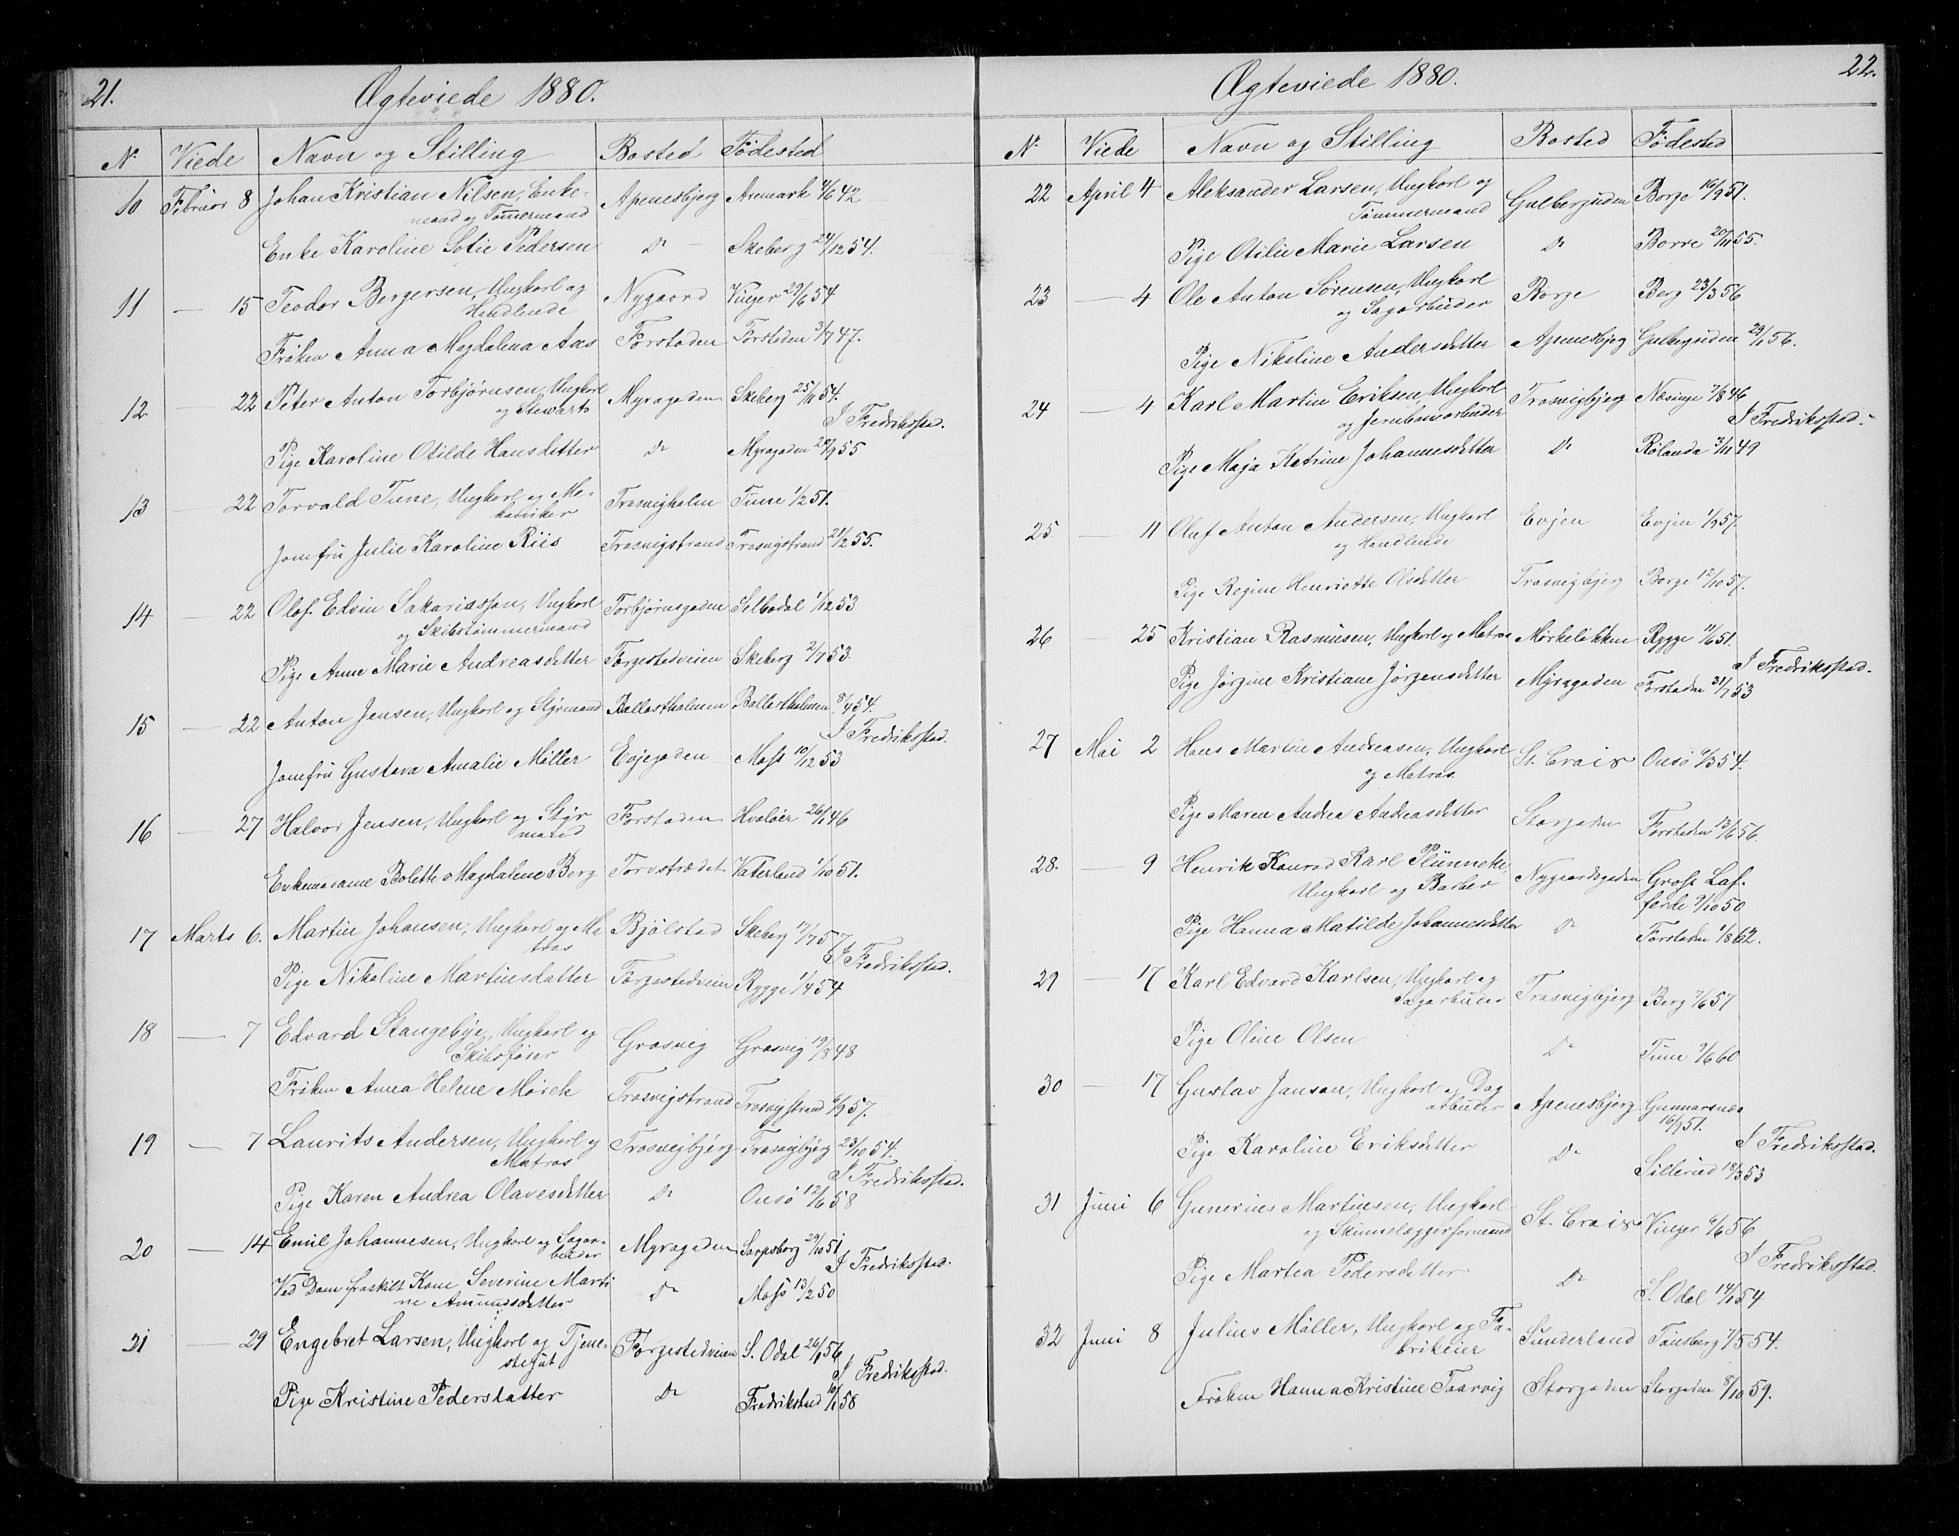 21.
Ægteviede 1880.
N. Viede Navn og Stilling Bosted Fødested
10 Februar 8 Johan Kristian Nilsen, Enke-
mand og Tømmermand Apenesbjerg Aremark 42
Enke Karoline Sofie Pedersen Do Skeberg 24/12 54.
11 — 15 Teodor Bergersen, Ungkarl og
Handlende Nygaard Vinger 29/6 54
Frøken Anna Magdalena Aas Forstaden Forstaden 3/7 47.
12 — 22 Peter Anton Torbjørnsen, Ungkarl
og Stewarts Myragaden Skeberg 25/11 54.
I Fredriksstad.
Pige Karoline Otilde Hansdatter Do Myragaden 20/9 55
13 — 22 Torvald Tune, Ungkarl og Me-
kaniker Trosvigholm Tune 1/2 51.
Jomfru Julie Karoline Riis Trosvigstrand Trosvigstrand 21/2 55.
14 — 22 Olof Edvin Sakariasson, Ungkarl
og Skibstømmermand Torbjørnsgaden Silbodal 1/12 53
Pige Anne Marie Andreasdatter Torgestedveien Skeberg 2/7 53.
15 — 22 Anton Jensen, Ungkarl og Styrmand Ballastholmen Ballastholmen 8/4 54.
I Fredriksstad.
Jomfru Gustava Amalie Møller Evjegaden Moss 10/12 53
16 — 27 Halvor Jensen, Ungkarl og Styr
mand Forstaden Hvaløer 26/1 46
Enkemadame Bolette Magdalene Berg Torvstrædet Vaterland 1/10 51.
17 Marts 6. Martin Johansen, Ungkarl og Ma
tros Bjølstad Skeberg 17/7 57
I Fredriksstad.
Pige Nikoline Martinsdatter Torgestedveien Rygge 1/4 54
18 — 7 Edvard Stangebye, Ungkarl og
Skibsfører Grosvig Grosvig 19/8 48
Frøken Anna Helene Mørch Trosvigstrand Trosvigstrand 6/9 57.
19 — 7 Laurits Andersen, Ungkarl og
Matros Trosvigbjerg Trosvigbjerg 23/10 54.
I Fredriksstad.
Pige Karen Andrea Olavesdatter Do Onsø 12/6 58
20 — 14 Emil Johannesen, Ungkarl og Sagar-
beider Myragaden Sarpsborg 29/10 51
I Fredriksstad.
Ved Dom fraskilt Kone Severine Marti
ne Amundsdatter Do Moss 13/2 50
21 — 29 Engebret Larsen, Ungkarl og Tjene-
stegut Torgestedveien S. Odal 26/1 56
I Fredriksstad.
Pige Kristine Pedersdatter Do Fredrikstad 10/1 58
22.
Ægteviede 1880.
N. Viede Navn og Stilling Bosted Fødested
22 April 4 Aleksander Larsen, Ungkarl og
Tømmermand Gulbergsuden Borge 16/9 51.
Pige Otilie Marie Larsen Do Borre 20/11 55.
23 — 4 Ole Anton Sørensen, Ungkarl
og Sagarbeider Borge Berg 23/3 56
Pige Nikoline Andersdatter Apenesbjeg Gulbergsuden 29/1 56.
24 — 4 Karl Martin Eriksen, Ungkarl
og Jernbanearbeider Trosvigbjerg Næsinge 7/8 46
I Fredriksstad.
Pige Maja Katrine Johannesdatter Do Rølanda 3/11 49
25 — 11 Oluf Anton Andersen, Ungkarl
og Handlende Evjen Evjen 1/9 57.
Pige Regine Henriette Olsdatter Trosvigbjerg Borge 12/10 57.
26 — 25 Kristian Rasmusen, Ungkarl og Matros Mørkeløkken Rygge 51.
I Fredriksstad.
Pige Jørgine Kristiane Jørgensdatter Myragaden Forstaden 31/7 53
27 Mai 2 Hans Martin Andreasen, Ungkarl
og Matros St. Croix Onsø 6/3 54.
Pige Maren Andrea Andreasdatter Storgaden Forstaden 13/6 56.
28. — 9 Henrik Konrad Karl Plünneke,
Ungkarl og Barber Nygaardsgaden Gross Laf-
ferde 9/10 50
Pige Hanna Matilde Johannesdatter Do Forstaden 1/8 62.
29 — 17 Karl Edvard Karlsen, Ungkarl og
Sagarbeider Trosvigbjerg Berg 7/6 57
Pige Oline Olsen Do Tune 7/6 60
30 — 17 Gustav Janson, Ungkarl og Dag
arbeider Apenesbjerg Gunnarsnæs
16/7 51.
I Fredriksstad.
Pige Karoline Eriksdatter Do Sillerud 18/3 53
31 Juni 6 Gunerius Martinsen, Ungkarl
og Skinnelæggerformand St. Croix Vinger 6/6 56
I Fredriksstad.
Pige Martea Pedersdatter Do S. Odal 14/1 54
32 Juni 8 Julius Møller, Ungkarl og Fa-
brikeier Sunderland Tønsberg 7/5 54.
Frøken Hanna Kristine Taarvig Storgaden Storgaden 8/10 59.